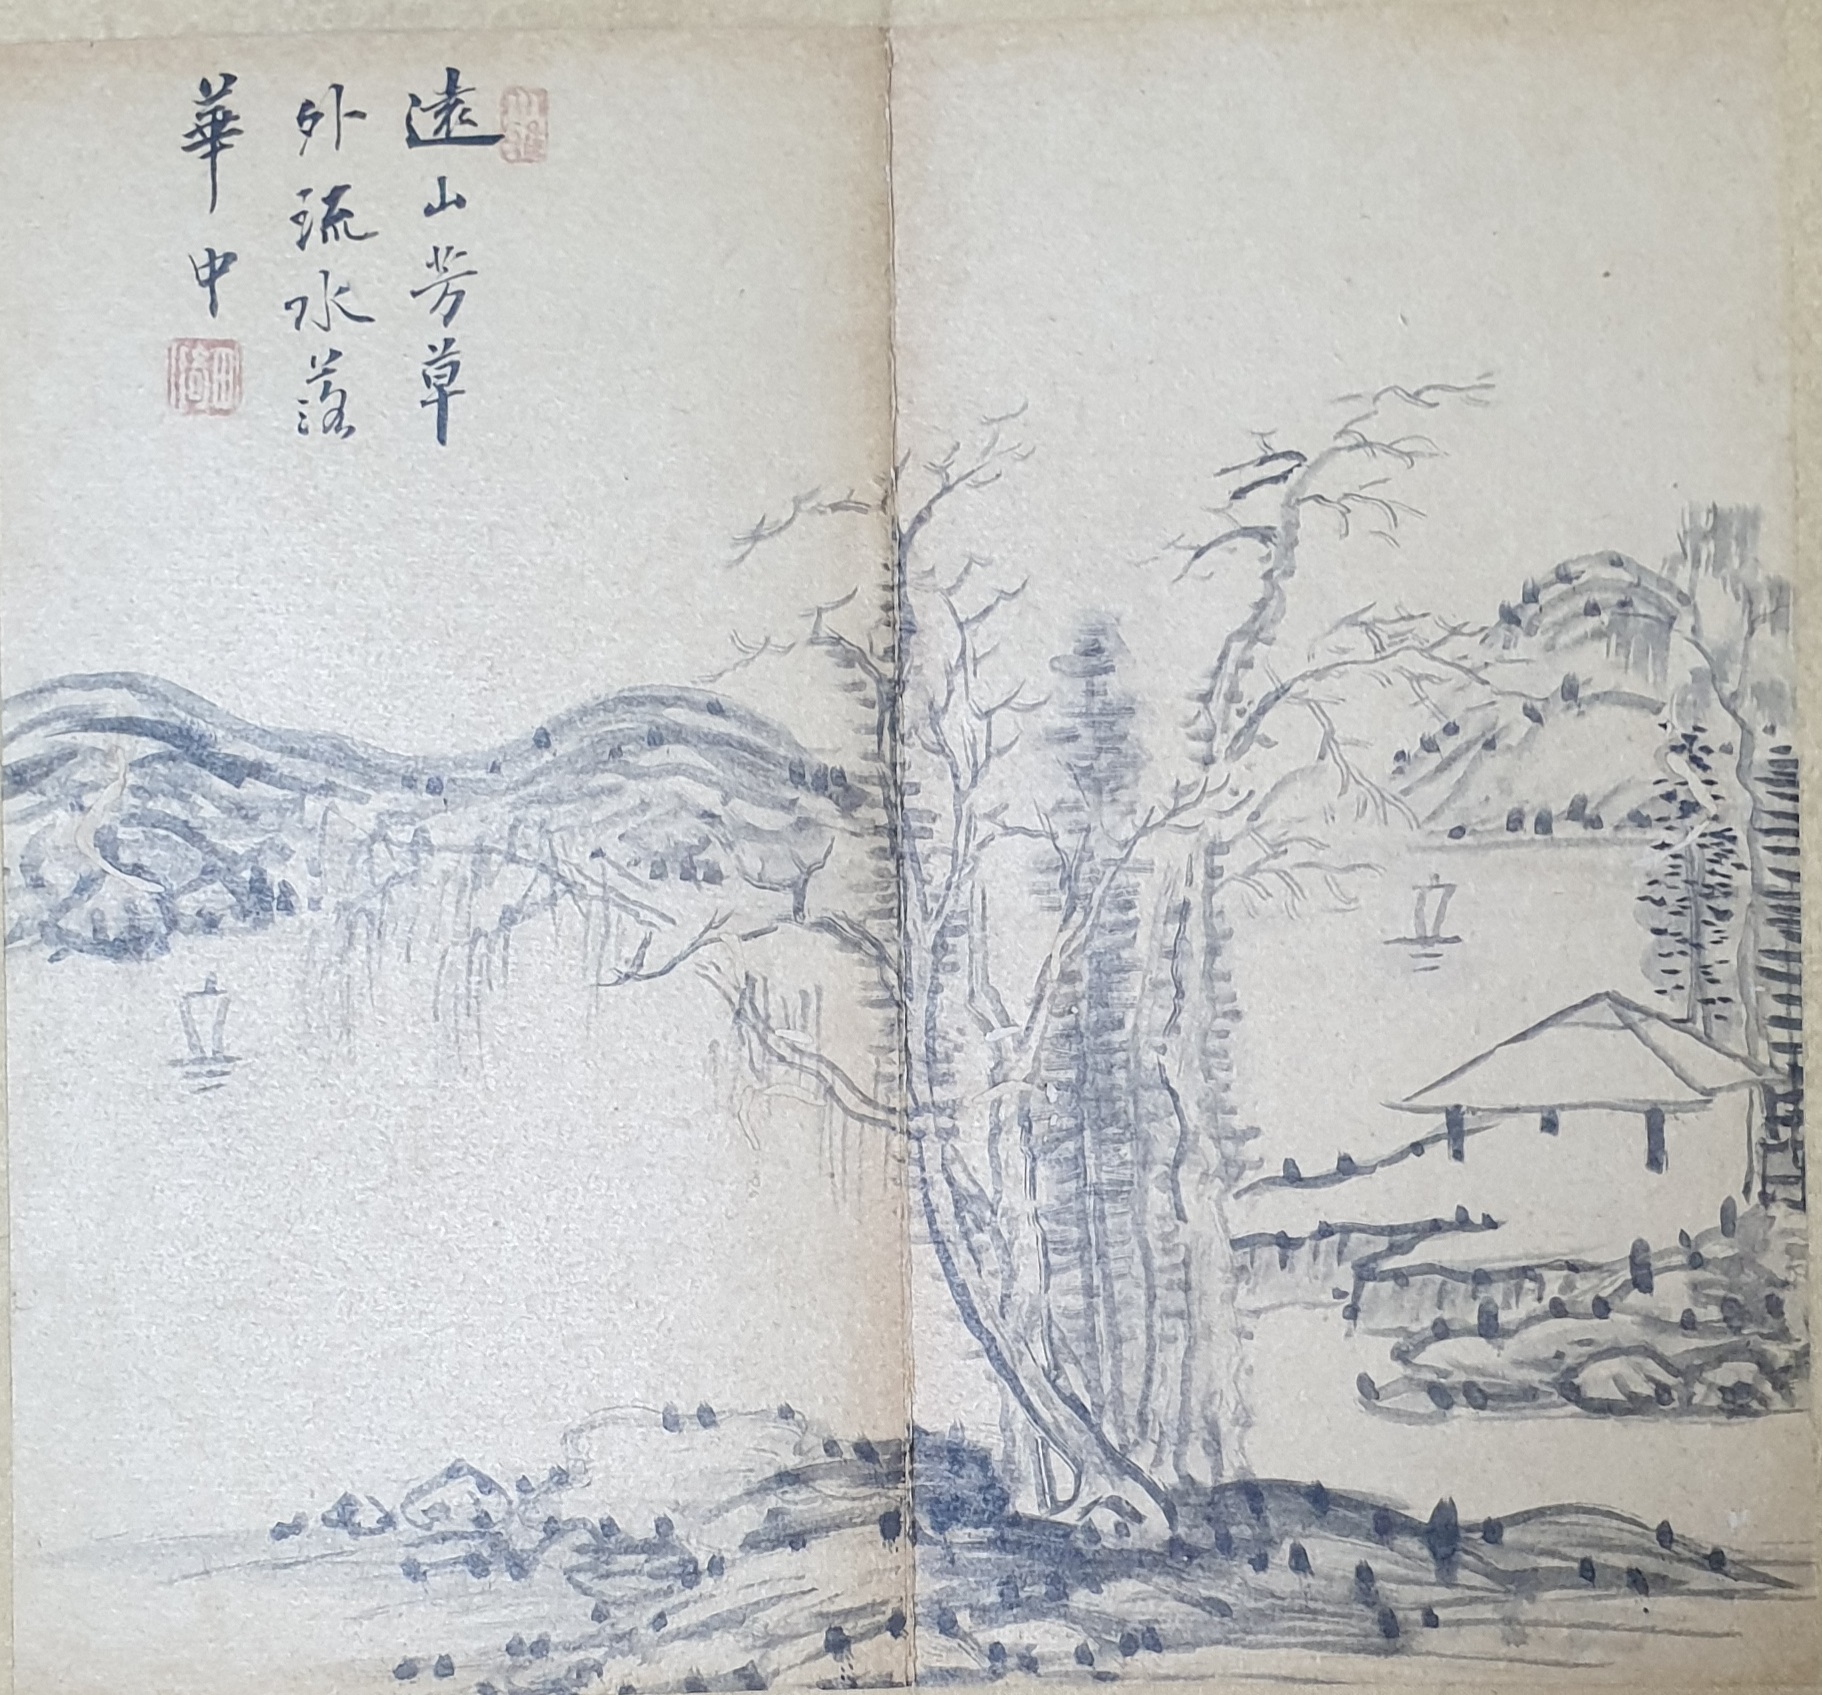 遠山芳草
外流水落
華中